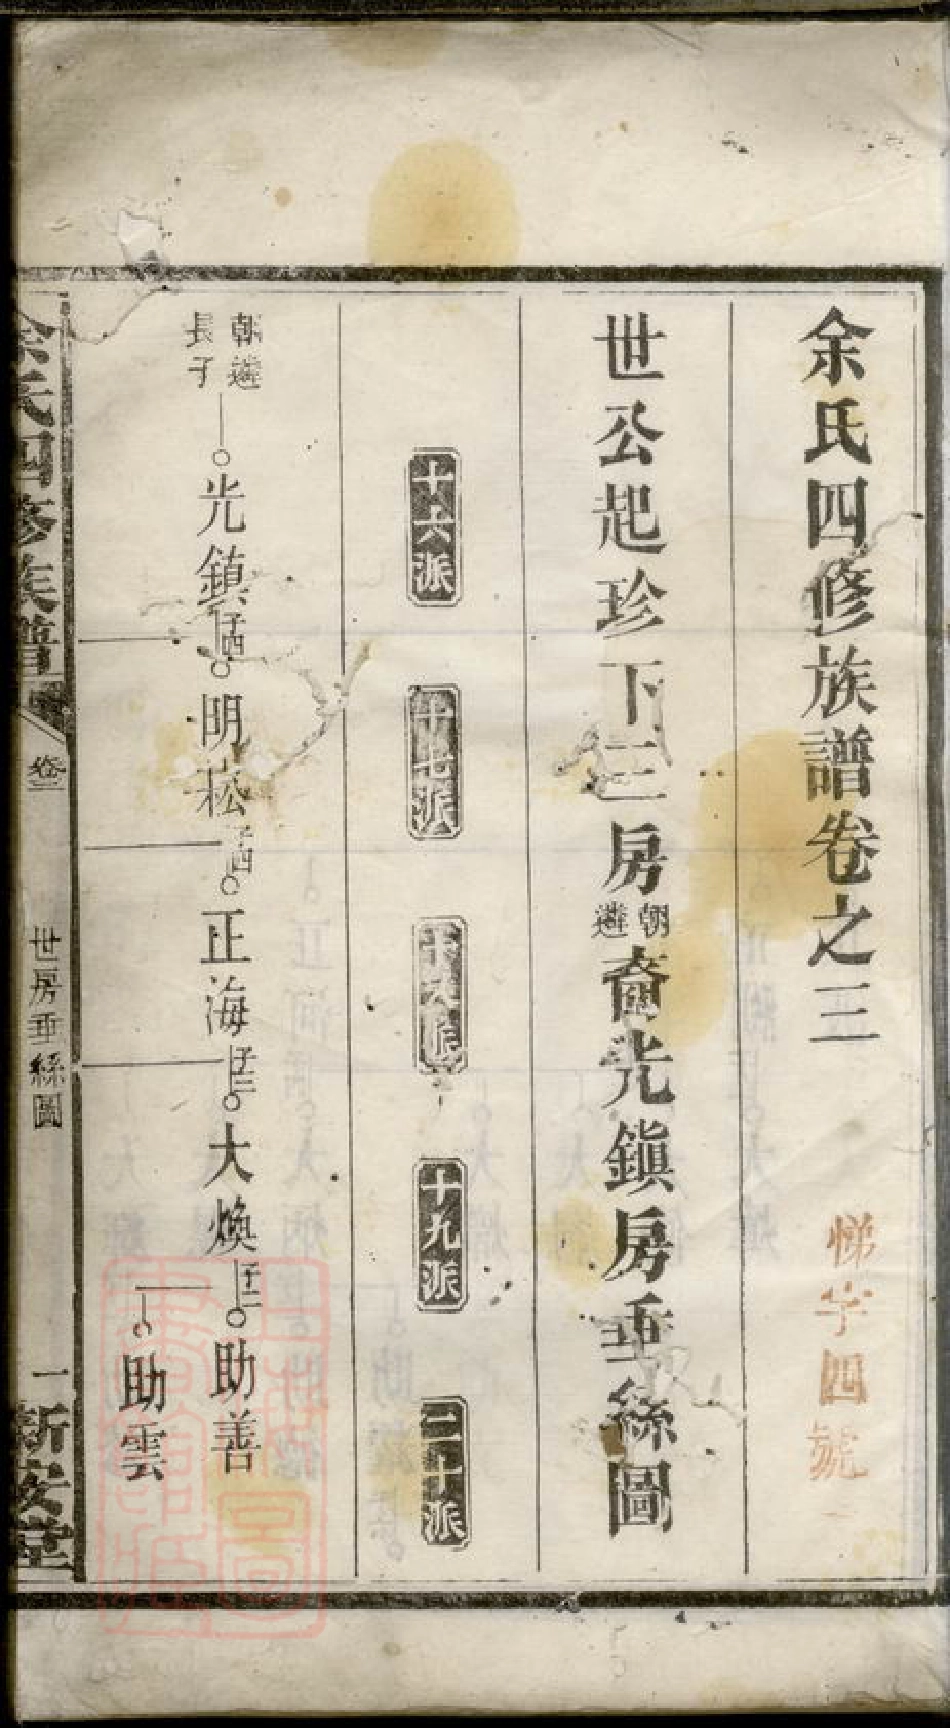 余氏四修族譜卷之三
悌字四號
世公起珍下三房朝遴裔光鎮房垂絲圖
十六派
十七派
十八派
十九派
二十派
朝遴
長子
光鎮子四
明崧子四
正海子二
大煥子二
助善
助雲
余氏四修族譜
卷三
世房垂絲圖
一
新安堂